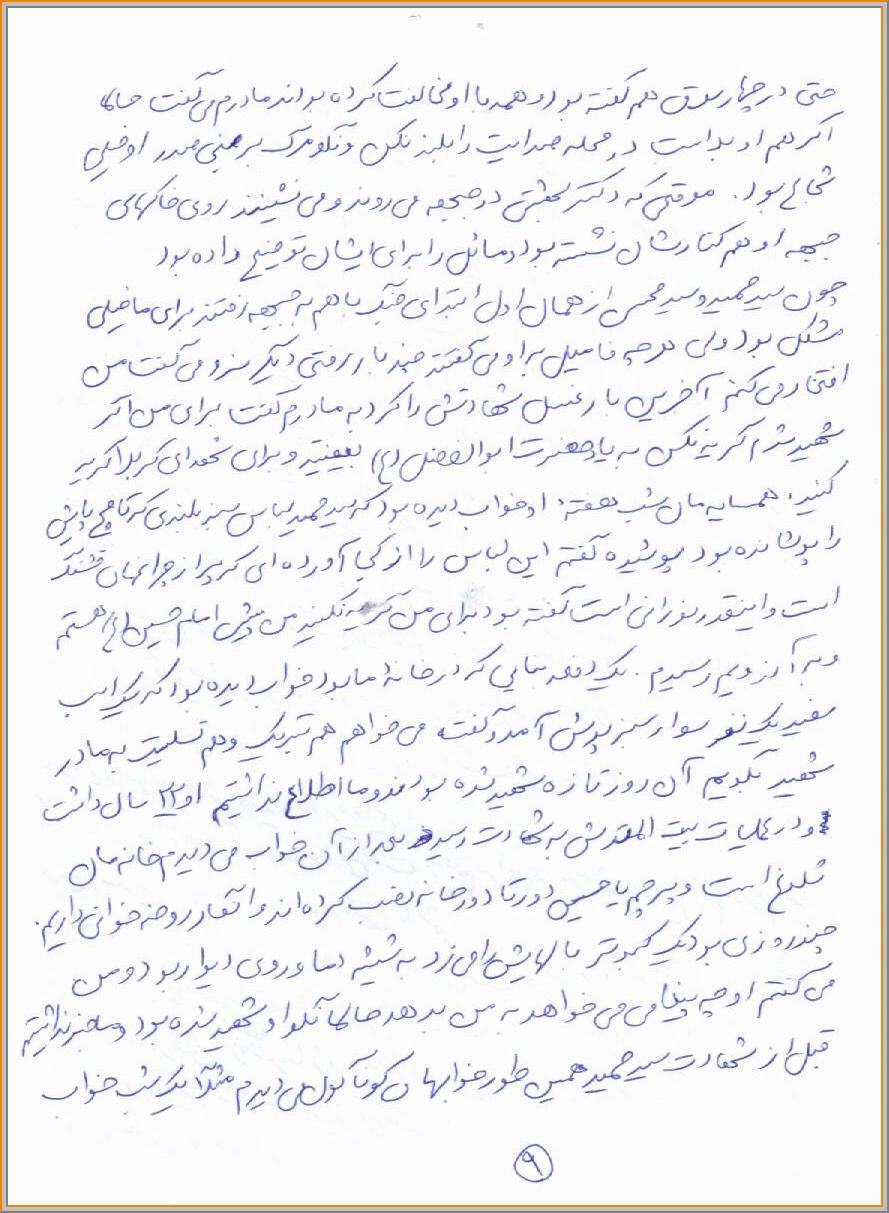 حتی در چهار سوق هم گفته بود و همه با او مخالفت کرده بودند مادرم می گفت حالا
اگر هم او بد است در محله صدایت را بلند نکن و نگو مرگ بر بنی صدر او خیلی
شجاع بود. موقعی که دکتر بهشتی در جبهه می روند و می نشینند روی خاکهای
جبهه او هم کنارشان نشسته بود و مسائل را برای ایشان توضیح داده بود
چون سید حمید و سید محسن از همان اول ابتدای جنگ با هم به جبهه رفتند برای ما خیلی
مشکل بود ولی هر چه فامیل به او می گفتند چند بار رفتی دیگر نرو می گفت من
افتخار می کنم آخرین بار غسل شهادتش را کرد به مادرم گفت برای من اگر
شهید شدم گریه نکن به یاد حضرت ابوالفضل (ع) بیفتید و برای شهدای کربلا گریه
کنید. همسایه مان شب هفته او خواب دیده بود که سید حمید لباس سبز بلندی که تا مچ پایش
را پوشانده بود پوشیده گفتم این لباس را از کجا آورده ای که پر از چراغهای قشنگ
است و اینقدر نورانی است گفته بود برای من گریه نکنید من پیش امام حسین (ع) هستم
و به آرزویم رسیدم. یک دفعه بنایی که در خانه ما بود خواب دیده بود که یک اسب
سفید یک نفر سوار سبز پوش آمد و گفت می خواهم هم تبریک و هم تسلیت به مادر
شهید بگویم آن روز تازه شهید شده بود و ما اطلاع نداشتیم او ۲۲ سال داشت
و در عملیات بیت المقدس به شهادت رسید بعد از آن خواب می دیدم خانه مان
شلوغ است و پرچم یا حسین دور تا دور خانه نصب کرده اند و آنقدر روضه خوانی داریم.
چند روزی بود یک کبوتر بالهایش را می زد به شیشه ما و روی دیوار بود و من
می گفتم او چه پیغامی می خواهد به من بدهد حالا نگو او شهید شده بود و ما خبر نداشتیم
قبل از شهادت سید حمید همین طور خوابهای گوناگون می دیدم مثلاً یک شب خواب
۹